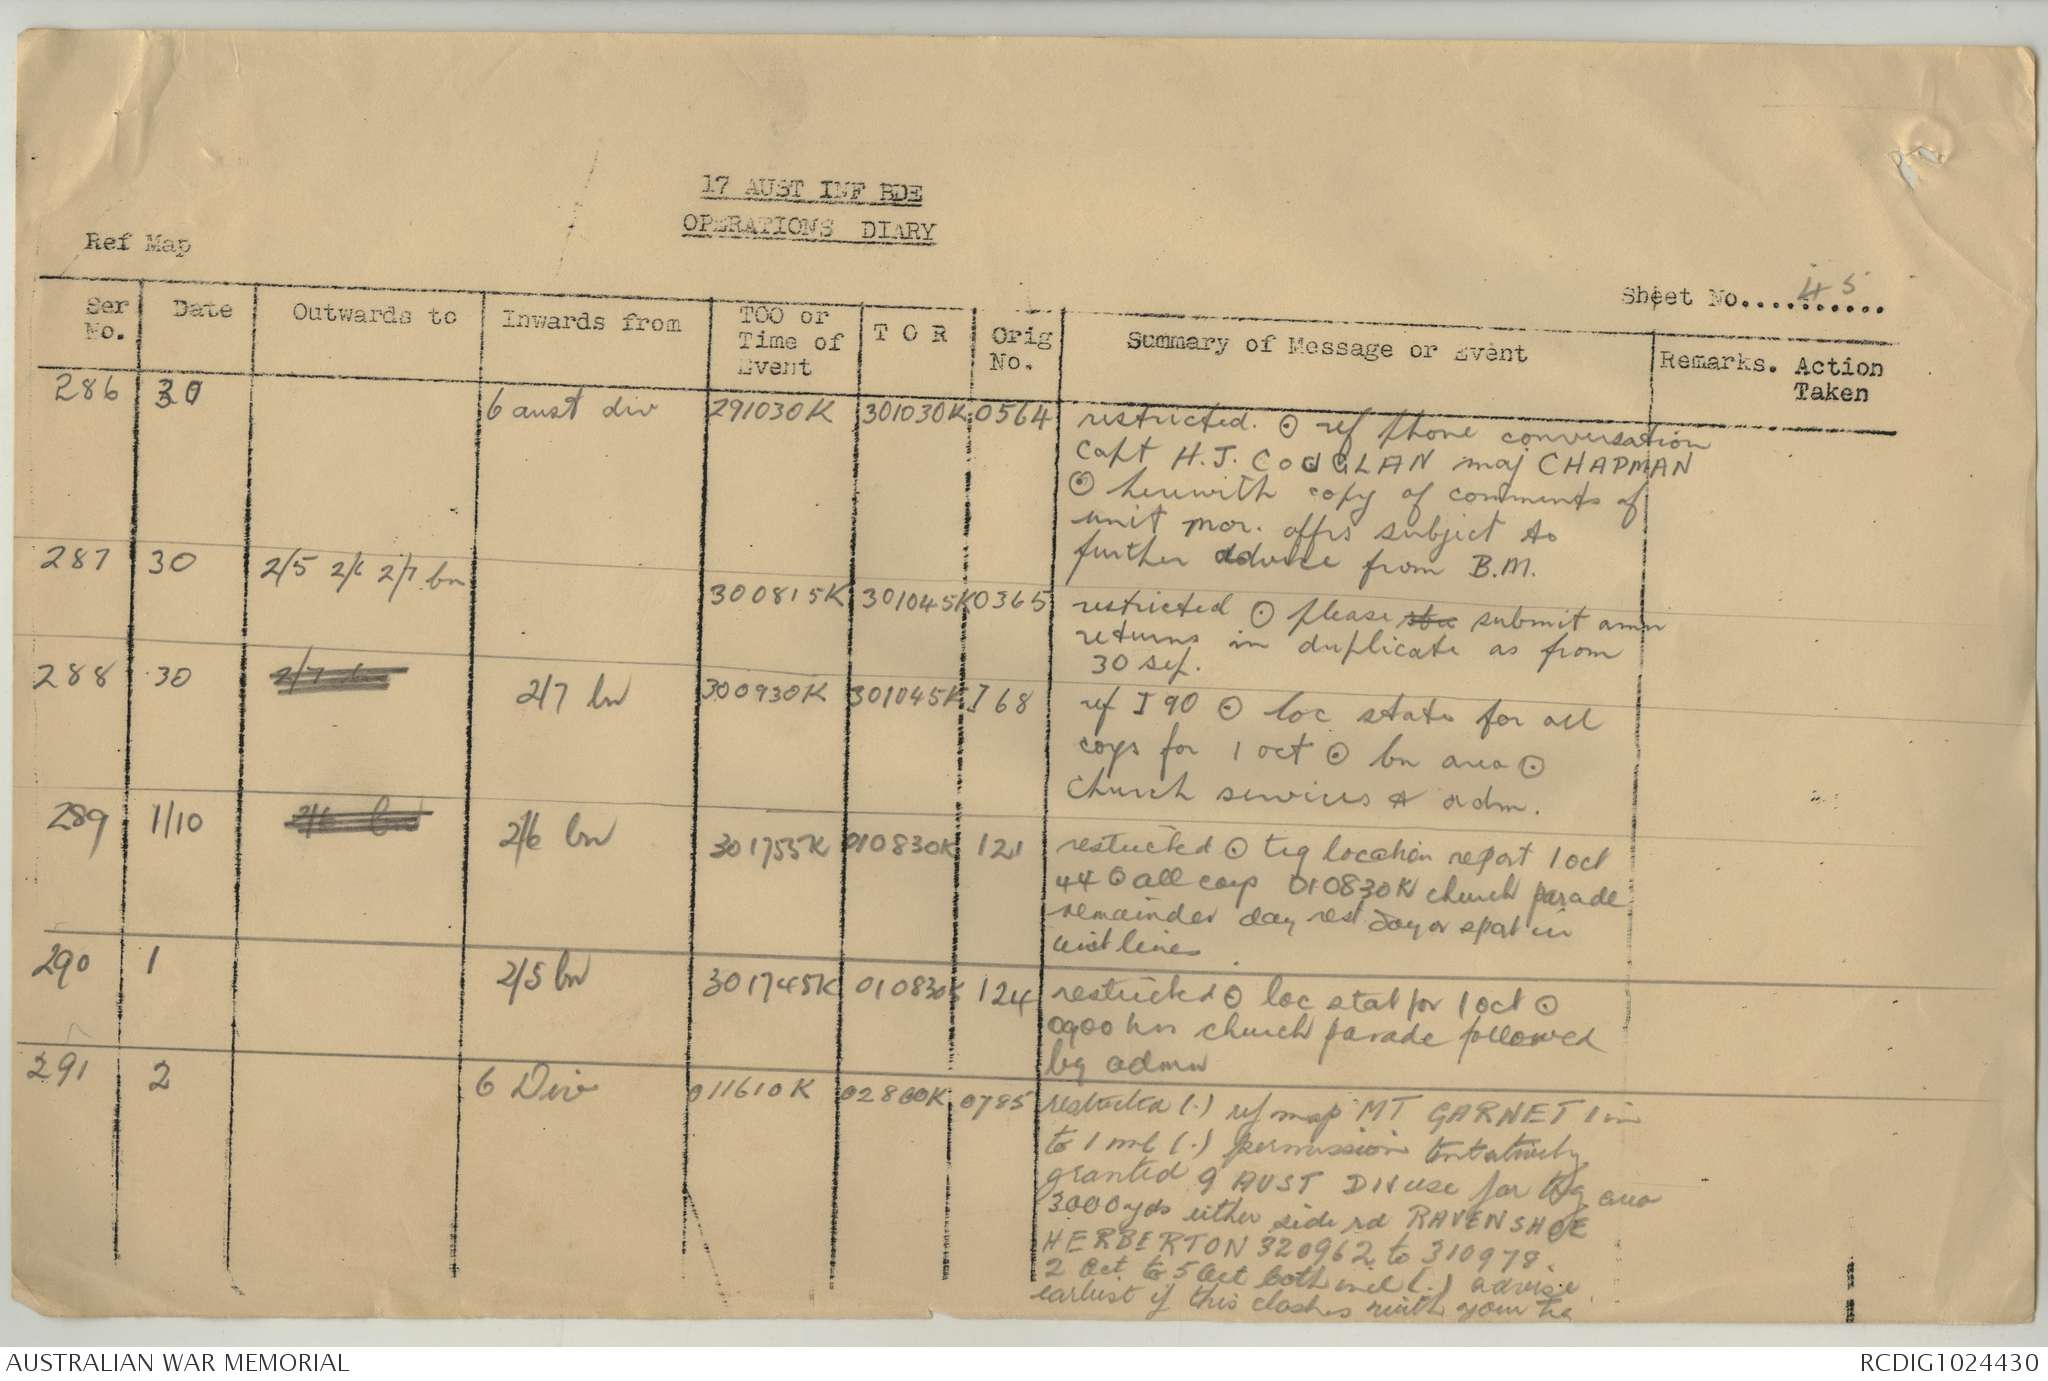 17 AUST INF BDE
OPERATIONS DIARY
Ref Map
Sheet No.......... 45
Ser No. Date Outwards to Inwards from TOO or Time of Event T O R Orig No. Summary of Message or Event Remarks. Action Taken
286 30 6 aust div 291030K 301030K 0564 restricted. ⊙ ref phone conversation
Capt H.J. COUGLAN maj CHAPMAN
⊙ herewith copy of comments of
unit mor. offrs subject to
further advice from B.M.
287 30 2/5 2/6 2/7 bn 300815K 301045K 0365 restricted ⊙ please submit amn
returns in duplicate as from
30 sep.
288 30 2/7 bn 2/7 bn 300930K 301045K I 68 ref I 90 ⊙ loc state for all
coys for 1 oct ⊙ bn area ⊙
Church services & adm.
289 1/10 2/6 bn 2/6 bn 301755K 010830K 121 restricted ⊙ trg location report 1 oct
44 ⊙ all coys 010830K church parade
remainder day rest day or spent in
unit lines
290 1 2/5 bn 301745K 010830K 124 restricted ⊙ loc stat for 1 oct ⊙
0900 hrs church parade followed
by admn
291 2 6 Div 011610K 02800K 0785 restricted (.) ref map MT GARNET 1 in
to 1 ml (.) permission tentatively
granted 9 AUST DIV use for trg area
3000 yds either side rd RAVENSHOE
HERBERTON 320962 to 310978.
2 Oct to 5 Oct both incl (.) advise
earliest if this clashes with your
AUSTRALIAN WAR MEMORIAL
RCDIG1024430